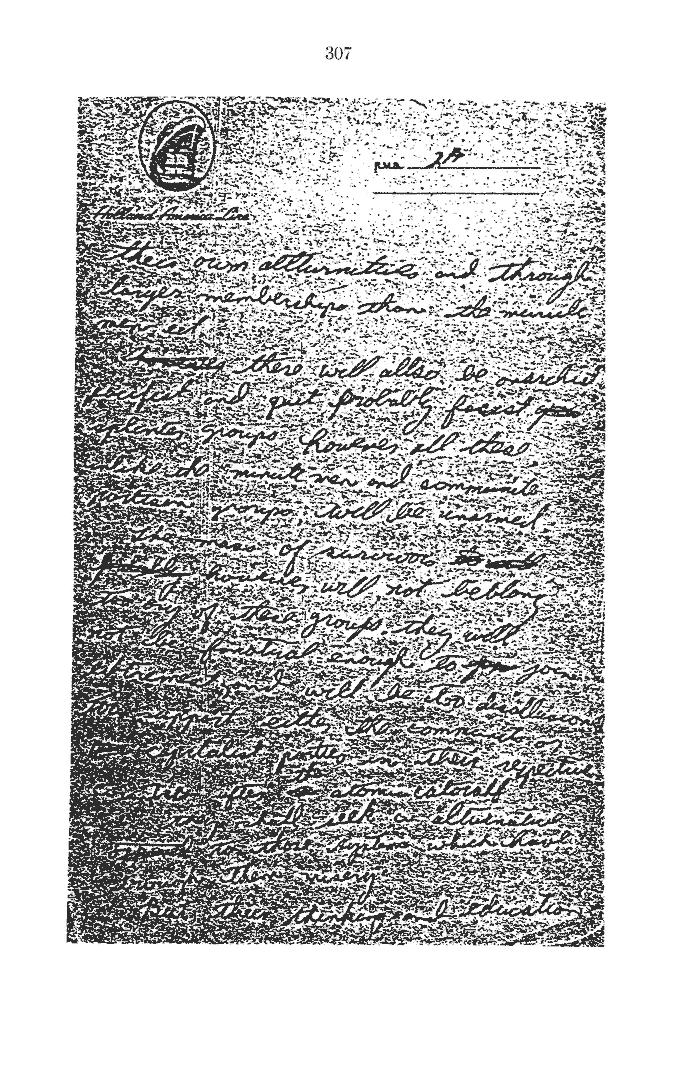 307
Holland-America Line
their own alturnities and through
larger memberships than the minute
men ect.
there will allso be anarchist
pacifist and quit probably fasist
splinter groups however all these
unlike the minutinen and communist
partisan groups, will be unarmed.
The mass of survivors
however will not beblong
to any of these groups. they will
not be fanatical enough to join
extremest, and will be too disallusioned
to support either the communits or
capitalist parties in their respective
after the atomic
seek a alturnative
to those systems which have
them misery.
But their thinking and education